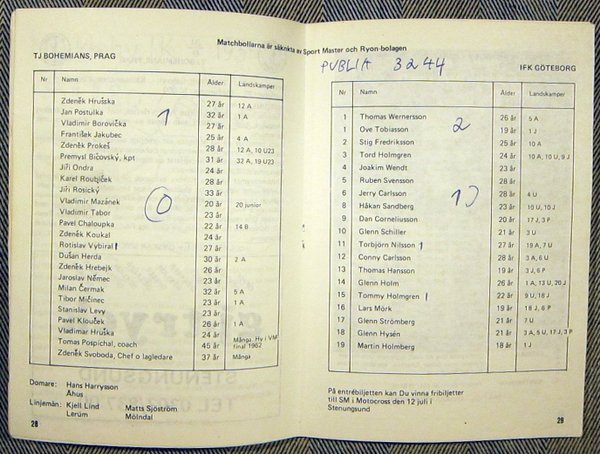 Matchbollarna är skänkta av Sport Master och Ryon-bolagen
TJ BOHEMIANS, PRAG
Nr Namn Ålder Landskamper
Zdeněk Hruška 27 år 12 A
Jan Postulka 32 år 1 A
Vladimir Borovička 27 år
František Jakubec 25 år 4 A
Zdeněk Prokeš 28 år 12 A, 10 U23
Premysl Bičovský, kpt 31 år 32 A, 19 U23
Jiři Ondra 24 år
Karel Roubjiček 28 år
Jiři Rosický 33 år
Vladimir Mazánek 20 år 20 junior
Vladimir Tabor 23 år
Pavel Chaloupka 22 år 14 B
Zdeněk Koukal 24 år
Rotislav Vybiral 27 år
Dušan Herda 30 år 2 A
Zdeněk Hrebejk 26 år
Jaroslav Němec 23 år
Milan Čermak 32 år 5 A
Tibor Mičinec 23 år 1 A
Stanislav Levy 23 år
Pavel Klouček 26 år 1 A
Vladimar Hruška 24 år Många, Hy i VM
Tomas Pospichal, coach 45 år final 1962
Zdeněk Svoboda, Chef o lagledare 37 år Många
1
0
Domare: Hans Harrysson
Åhus
Linjemän: Kjell Lind Matts Sjöström
Lerum Mölndal
28
PUBLIA 3244
IFK GÖTEBORG
Nr Namn Ålder Landskamper
1 Thomas Wernersson 26 år 5 A
1 Ove Tobiasson 19 år 1 J
2 Stig Fredriksson 25 år 10 A
3 Tord Holmgren 24 år 10 A, 10 U, 9 J
4 Joakim Wendt 23 år
5 Ruben Svensson 28 år
6 Jerry Carlsson 28 år 4 U
8 Håkan Sandberg 23 år 10 U, 10 J
9 Dan Corneliusson 20 år 17 J, 3 P
10 Glenn Schiller 21 år 3 U
11 Torbjörn Nilsson 27 år 19 A, 7 U
12 Conny Carlsson 28 år 3 A, 6 U
13 Thomas Hansson 19 år 3 J, 6 P
14 Glenn Holm 26 år 1 A, 13 U, 20 J
15 Tommy Holmgren 22 år 9 U, 18 J
16 Lars Mörk 19 år 18 J, 6 P
17 Glenn Strömberg 21 år 7 U
18 Glenn Hysén 21 år 3 A, 5 U, 17 J, 3 P
19 Martin Holmberg 18 år 1 J
2
På entrébiljetten kan Du vinna fribiljetter
till SM i Motocross den 12 juli i
Stenungsund
29